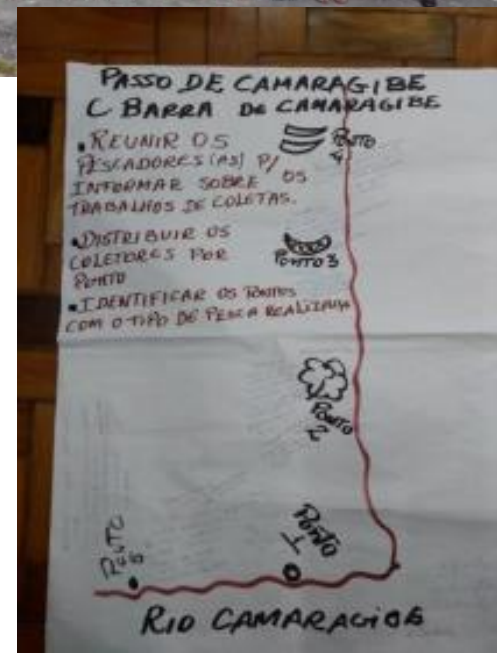 PASSO DE CAMARAGIBE
C BARRA DE CAMARAGIBE
• REUNIR OS
PESCADORES (AS) P/
INFORMAR SOBRE OS
TRABALHOS DE COLETAS.
• DISTRIBUIR OS
COLETORES POR
PONTO
• IDENTIFICAR OS PONTOS
COM O TIPO DE PESCA REALIZADA
PONTO
4
PONTO 3
PONTO
2
PONTO
1
PONTO
RIO CAMARAGIBE